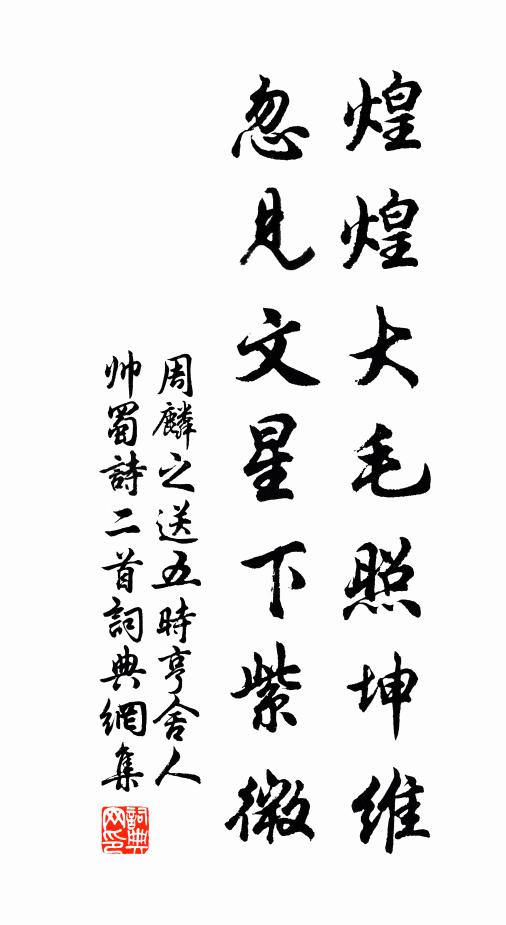 煌煌大毛照坤維
忽見文星下紫微
周麟之送五時亨舍人
帅蜀詩二首詞典網集
詞典
网印